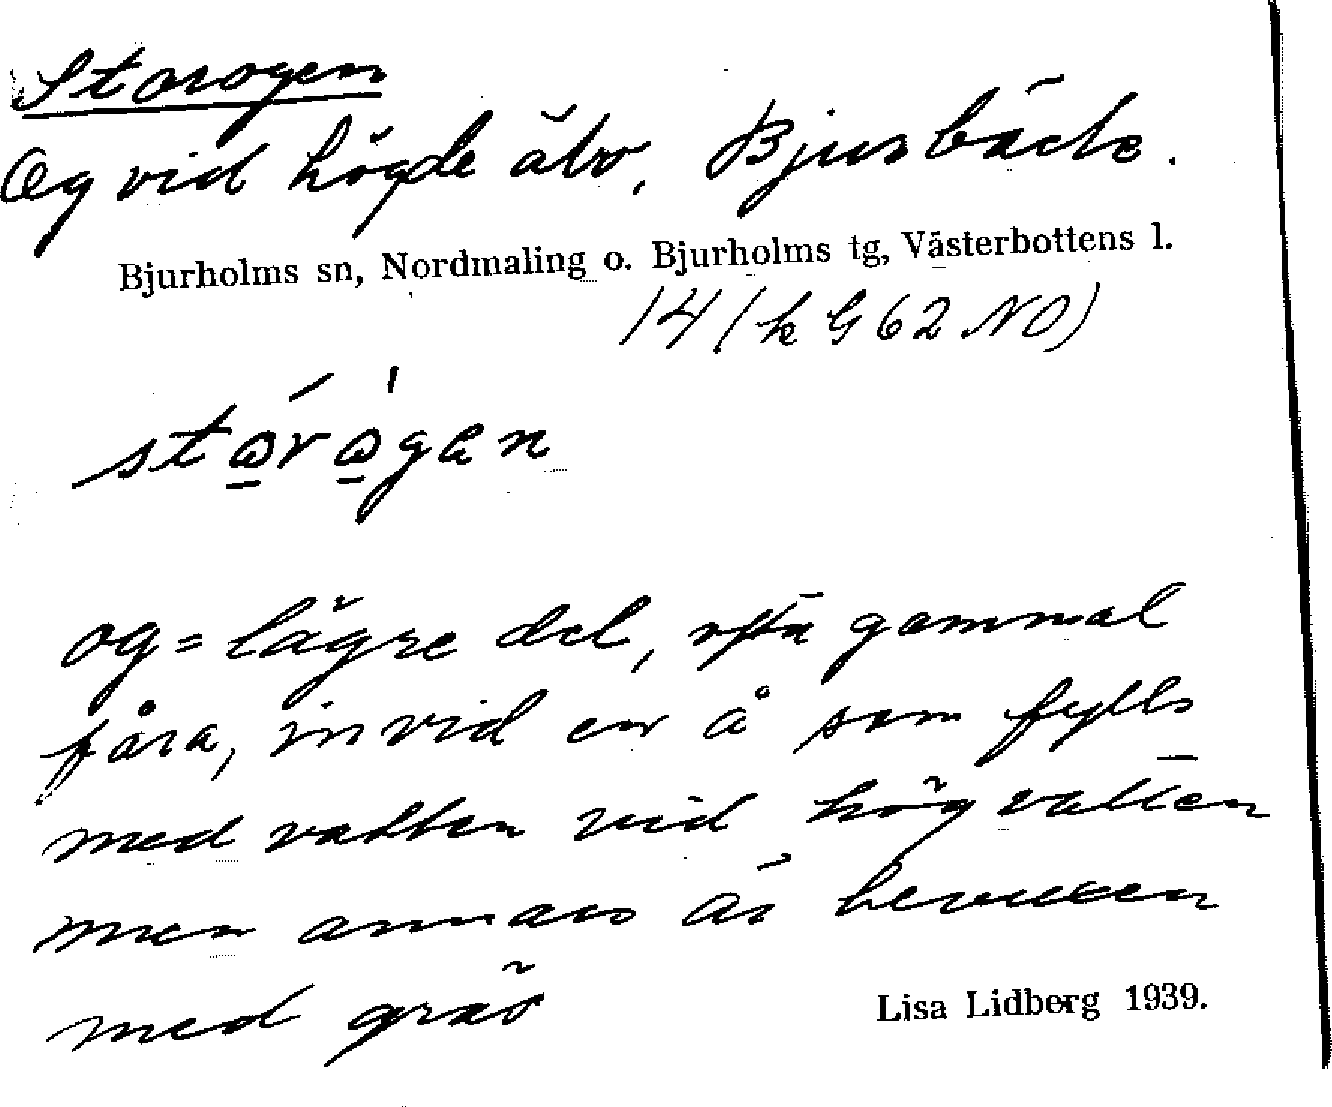 Storogen
Og vid högde älv, Bjurbäck.
Bjurholms sn, Nordmaling o. Bjurholms tg, Västerbottens l.
14 (k G 62 NO)
og = lägre del, ofta gammal
fåra, invid en å som fylls
med vatten vid högvatten
men annars är bevuxen
med gräs
Lisa Lidberg 1939.